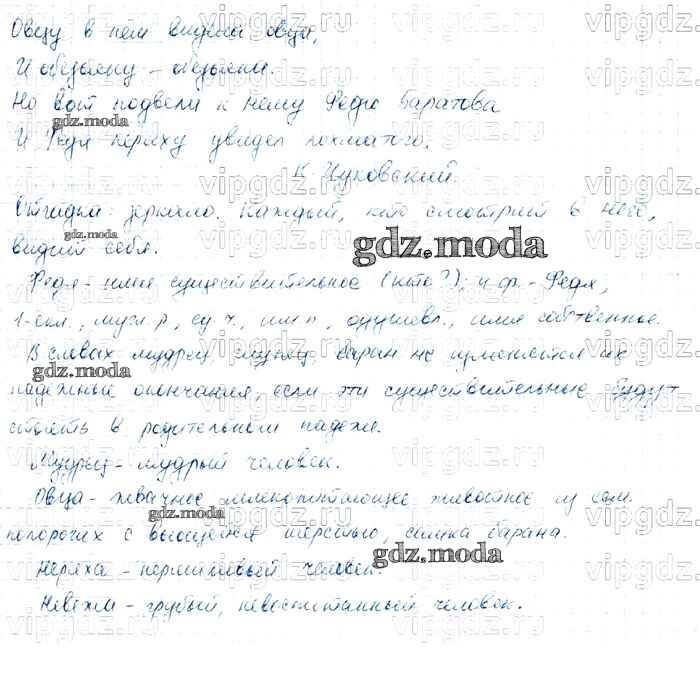 Овцу в нём видели овцы,
И обезьяну - обезьяны.
Но вот подвели к нему Федю Баратова
И Федя неряху увидел лохматого.
К. Чуковский.
Отгадка: зеркало. Каждый, кто смотрит в него,
видит себя.
Федя - имя существительное (кто?), н.ф. - Федя,
1-скл., муж.р., ед.ч., им.п., одушевл., имя собственное.
В словах мудрец, барин не изменятся их
падежные окончания, если эти существительные будут
стоять в родительном падеже.
Мудрец - мудрый человек.
Овца - жвачное млекопитающее животное из сем.
полорогих с вьющейся шерстью, самка барана.
Неряха - неряшливый человек.
Невежа - грубый, невоспитанный человек.
gdz.moda
vipgdz.ru